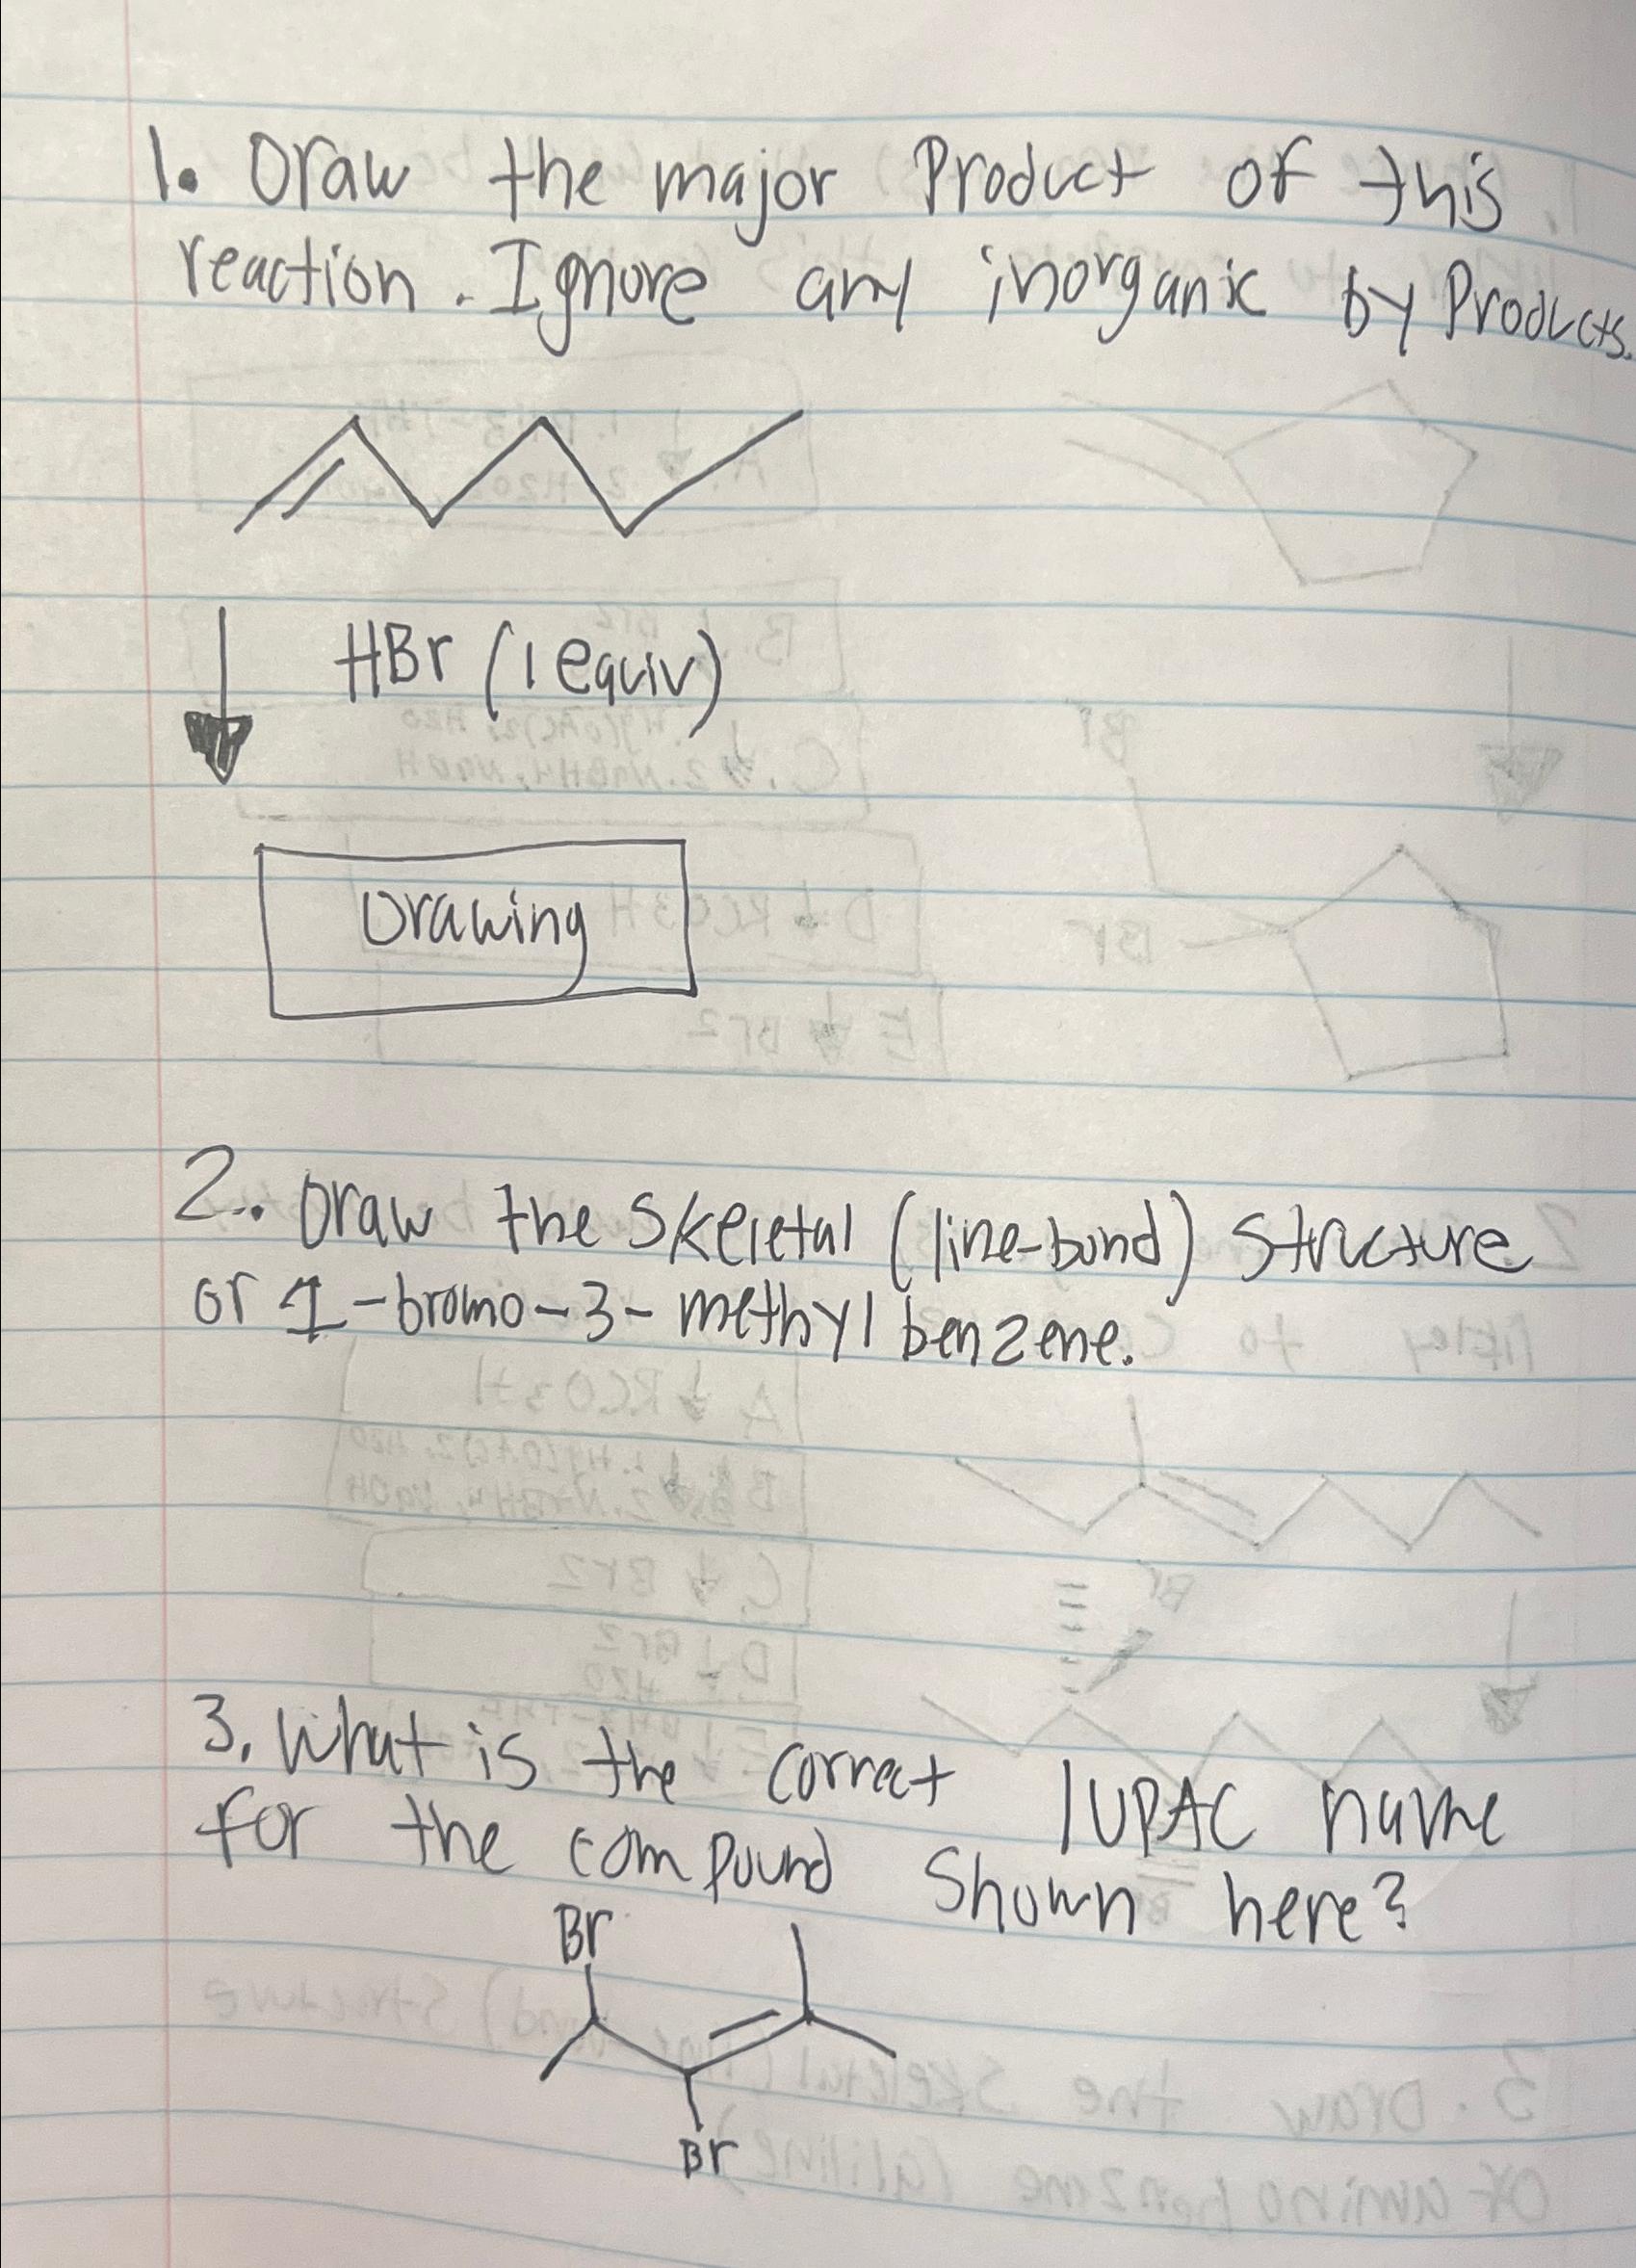 1. Draw the major Product of this
reaction. Ignore any inorganic by Products.
HBr (1 equiv)
Drawing
2. Draw the skeletal (line-bond) structure
or 1-bromo-3-methyl benzene.
3. What is the correct IUPAC name
for the compound shown here?
Br
Br